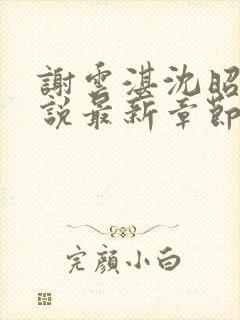 謝雲湛沈昭
說最新章節
完顏小白